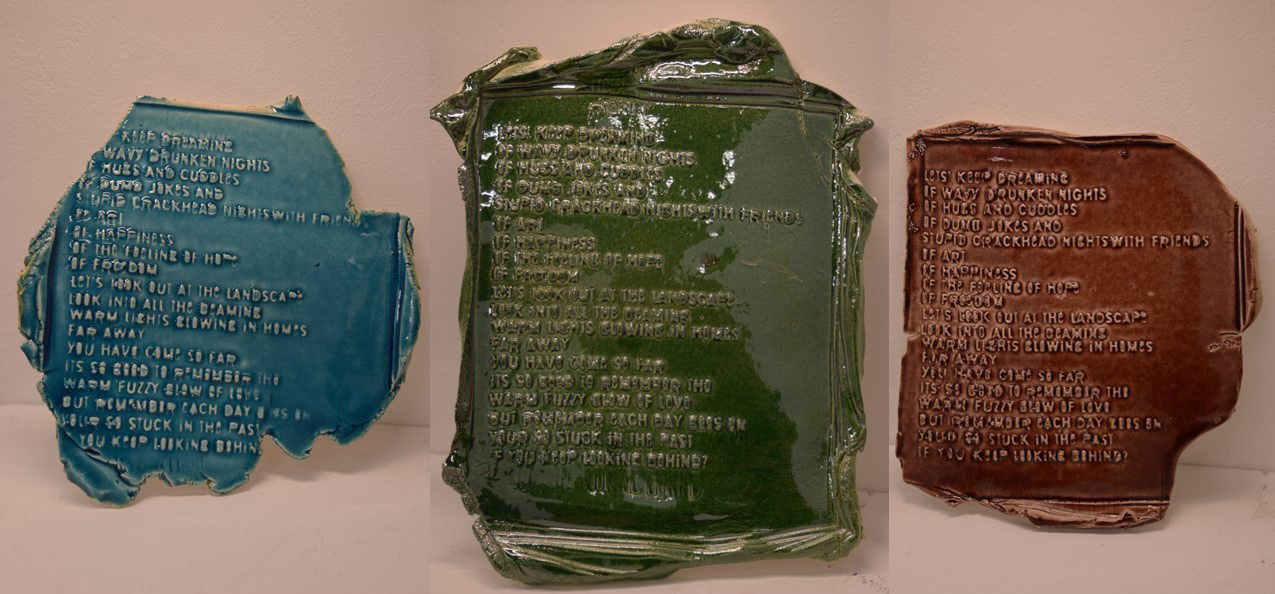 KEEP DREAMING
WAVY DRUNKEN NIGHTS
OF HUGS AND CUDDLES
OF DUMB JOKES AND
STUPID CRACKHEAD NIGHTSWITH FRIENDS
OF ART
OF HAPPINESS
OF THE FEELING OF HOPE
OF FREEDOM
LET'S LOOK OUT AT THE LANDSCAPE
LOOK INTO ALL THE BEAMING
WARM LIGHTS GLOWING IN HOMES
FAR AWAY
YOU HAVE COME SO FAR
ITS SO GOOD TO REMEMBER THE
WARM FUZZY GLOW OF LOVE
BUT REMEMBER EACH DAY GOES ON
YOUR SO STUCK IN THE PAST
YOU KEEP LOOKING BEHIND
LETS' KEEP DREAMING
OF WAVY DRUNKEN NIGHTS
OF HUGS AND CUDDLES
OF DUMB JOKES AND
STUPID CRACKHEAD NIGHTSWITH FRIENDS
OF ART
OF HAPPINESS
OF THE FEELING OF HOPE
OF FREEDOM
LET'S LOOK OUT AT THE LANDSCAPE
LOOK INTO ALL THE BEAMING
WARM LIGHTS GLOWING IN HOMES
FAR AWAY
YOU HAVE COME SO FAR
ITS SO GOOD TO REMEMBER THE
WARM FUZZY GLOW OF LOVE
BUT REMEMBER EACH DAY GOES ON
YOUR SO STUCK IN THE PAST
IF YOU KEEP LOOKING BEHIND?
LETS' KEEP DREAMING
OF WAVY DRUNKEN NIGHTS
OF HUGS AND CUDDLES
OF DUMB JOKES AND
STUPID CRACKHEAD NIGHTSWITH FRIENDS
OF ART
OF HAPPINESS
OF THE FEELING OF HOPE
OF FREEDOM
LET'S LOOK OUT AT THE LANDSCAPE
LOOK INTO ALL THE BEAMING
WARM LIGHTS GLOWING IN HOMES
FAR AWAY
YOU HAVE COME SO FAR
ITS SO GOOD TO REMEMBER THE
WARM FUZZY GLOW OF LOVE
BUT REMEMBER EACH DAY GOES ON
YOUR SO STUCK IN THE PAST
IF YOU KEEP LOOKING BEHIND?